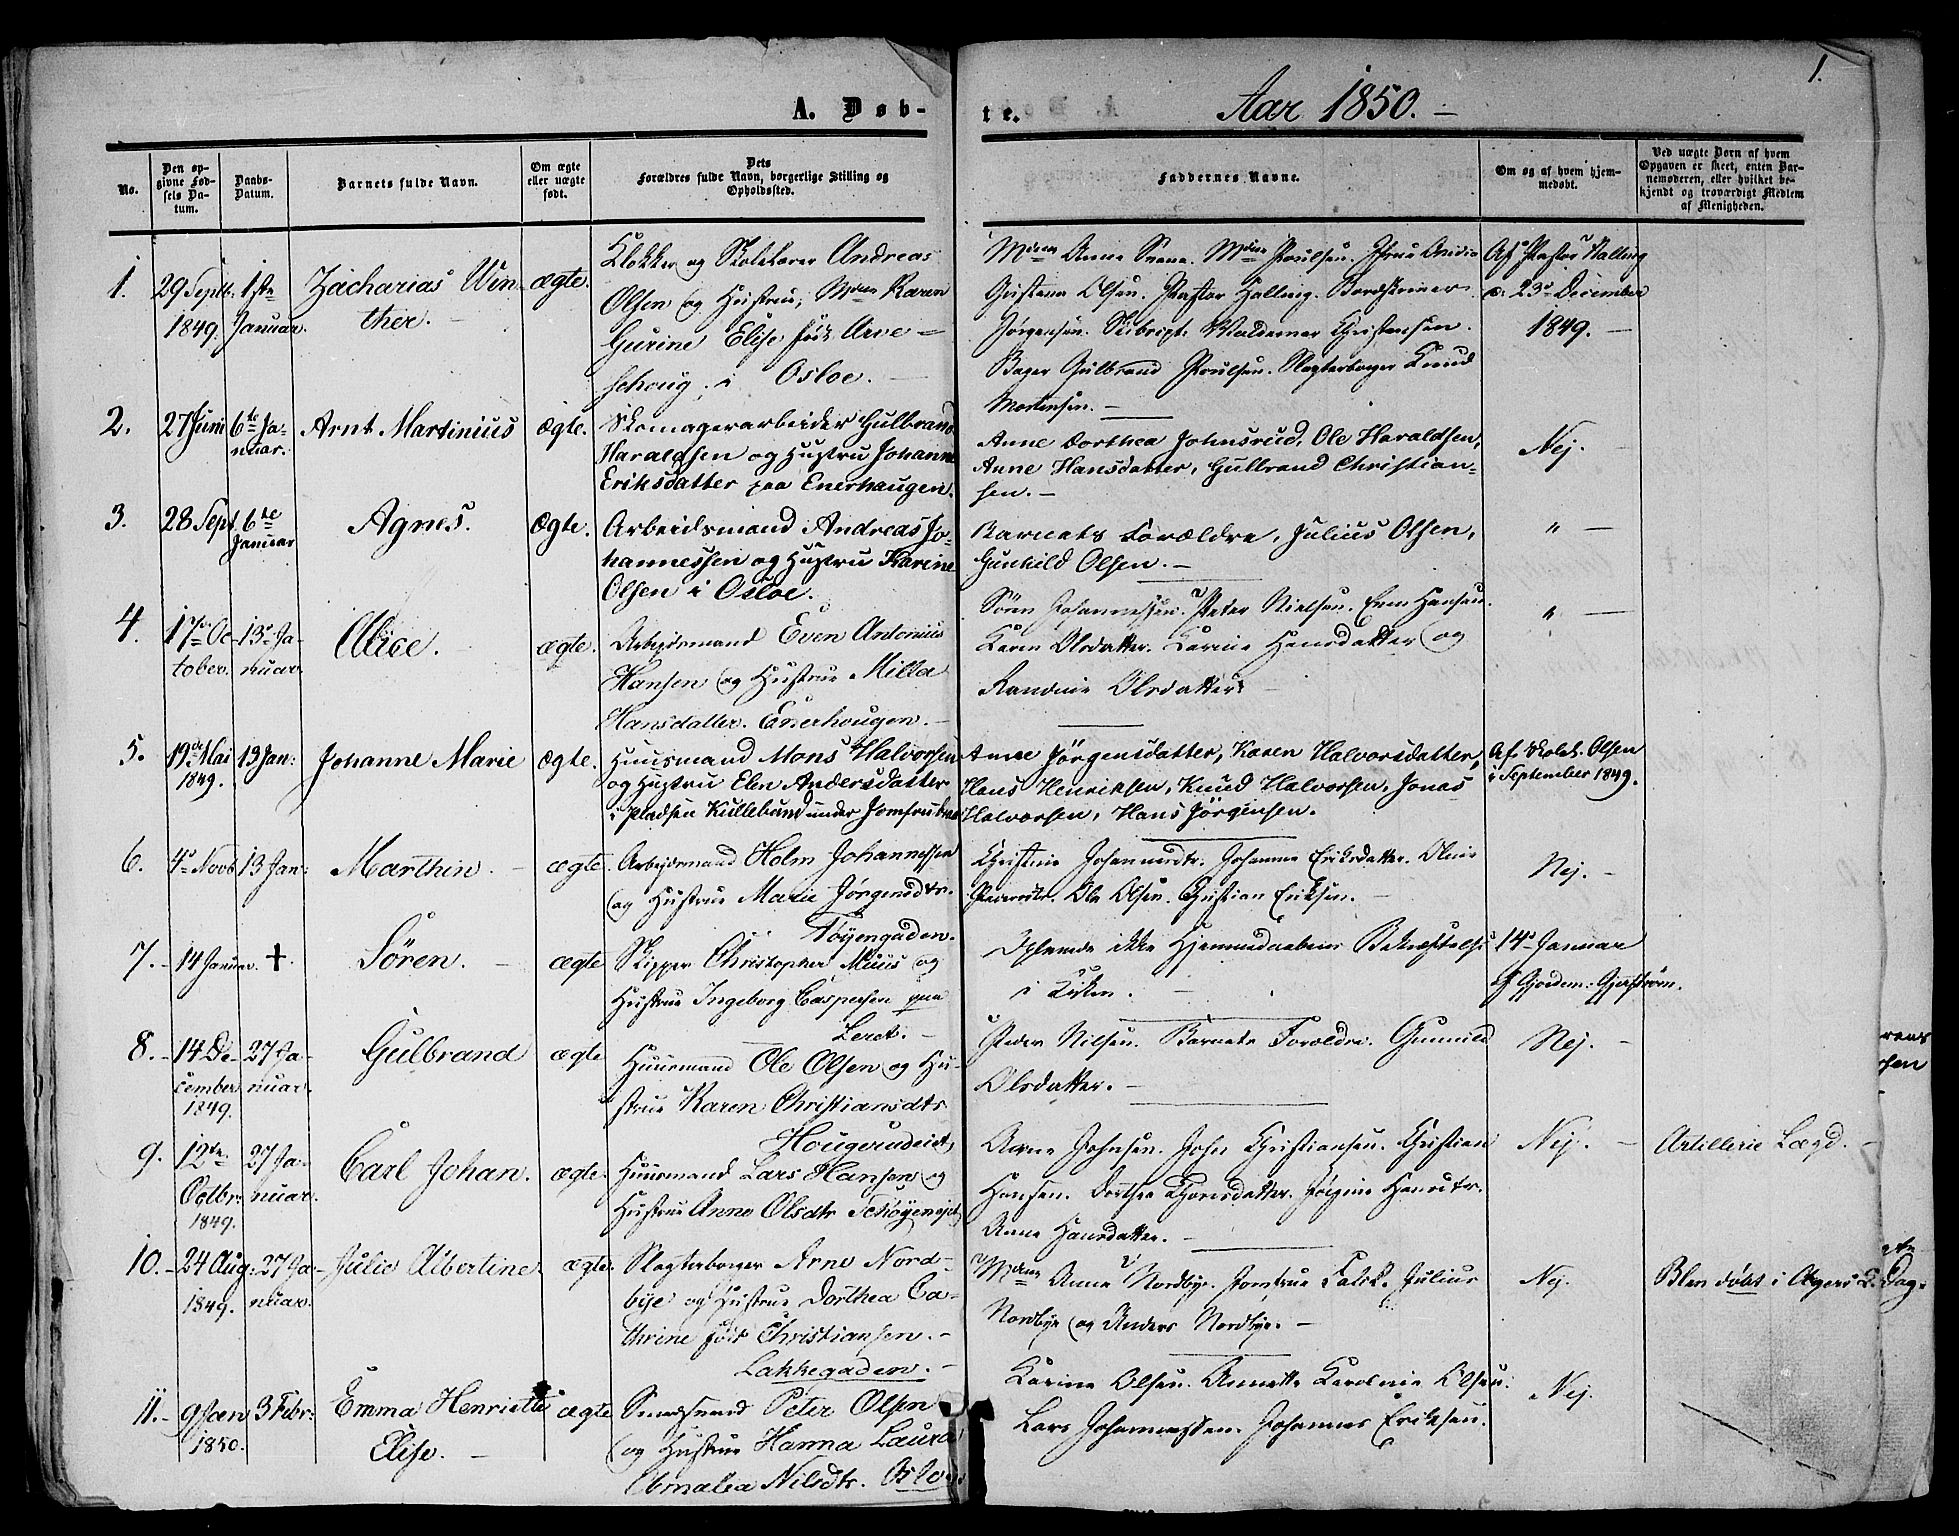 1.
A. Døb-
te.
Aar 1850. —
No.
Den op-
givne Fød-
sels Da-
tum.
Daabs-
Datum.
Barnets fulde Navn.
Om ægte
eller uægte
født.
Dets
Forældres fulde Navn, borgerlige Stilling og
Opholdssted.
Faddernes Navne.
Om og af hvem hjem-
medøbt.
Ved uægte Børn af hvem
Opgaven er skeet, enten Bar-
nemoderen, eller hvilket be-
kjendt og troværdigt Medlem
af Menigheden.
1.
29 Septb:
1849.
1ste
Januar.
Zacharias Win-
ther. —
ægte.
Klokker og Skolelærer Andreas
Olsen og Hustrue, Mdme Karen
Gurine Elise født Arve-
schoug, i Osloe. —
Mdme Anne Mdme Poulsen. Jfrue
Gustava Olsen. Pastor Halling.
Jørgensen. Waldemar Christensen.
Bager Gulbrand Poulsen. Slagterborger Knud
Mortensen. —
Af Pastor Halling
d: 23de December
1849. —
2.
27 Juni
6te Ja-
nuar.
Arnt Martinius
ægte.
Skomagerarbeider Gulbrand
Haraldsen og Hustru Johanne
Eriksdatter paa Enerhaugen.
Anne Dorthea Johnsrud, Ole Haraldsen,
Anne Hansdatter, Gulbrand Christian-
sen. —
Nej. —
3.
28 Sept.
6te
Januar
Agnes.
Ægte.
Arbeidsmand Andreas Jo-
hannessen og Hustru Karine
Olsen i Osloe.
Barnets Forældre, Julius Olsen,
Gunhild Olsen. —
" —
4.
17de Oc-
tober.
13de Ja-
nuar.
Alice. —
ægte.
Arbejdsmand Even Antonius
Hansen og Hustrue Milla
Hansdatter. Enerhougen. —
Sören Johannessen. Peter Nielsen. Even Hansen.
Karen Olsdatter. Karine Hansdatter og
Randine Olsdatter. —
" —
5.
19de Mai
1849.
13 Jan:
Johanne Marie
ægte.
Huusmand Mons Halvorsen
og Hustru Elen Andersdatter
i Pladsen Kullebund under Jomfrubraa
Anne Jörgensdatter, Karen Halvorsdatter,
Hans Henriksen, Knud Halvorsen, Jonas
Halvorsen, Hans Jörgensen.
Af Skolel. Olsen
i September 1849.
6.
4de Novb
13 Jan:
Marthin. —
ægte.
Arbejdsmand Holm Johannessen
og Hustrue Marie Jørgensdtr.
Töyengaden.
Christine Johannesdtr. Johanne Eriksdatter. Oline
Pedersdtr. Ole Olsen. Christian Eriksen. —
Nej. —
7. —
14 Januar.
+.
Sören. —
ægte
Skipper Christopher Muus og
Hustrue Ingeborg Caspersen paa
Leret. —
ikke Hjemmedaabens Bekræftelse
i Kirken. —
14de Januar
Gjordem:
8. —
14 De-
cember
1849.
27 Ja-
nuar.
Gulbrand
ægte
Huusmand Ole Olsen og Hu-
strue Karen Christiansdtr
Hougerudeiet,
Peder Nilsen. Barnets Forældre. Gunnild
Olsdatter. —
Nej. —
9.
12te
Octbr:
1849.
27 Ja-
nuar.
Carl Johan.
ægte.
Huusmand Lars Hansen og
Hustrue Anne Olsdtr Tetöyenejet
Anne Johnsen. John Christiansen. Christian
Hansen. Dorthea Thorsdatter. Jörgine Hansdtr.
Anne Hansdatter. —
Nej. —
Artillerie Lægd. —
10. —
24 Aug:
1849.
27 Ja-
nuar.
Julie Albertine.
ægte.
Slagterborger Arne Nord-
bye og Hustrue Dorthea Ca-
thrine født Christiansen. —
Lakkegaden. —
Mdme Anne Nordbye. Jomfrue Falck. Julius
Nordbye og Anders Nordbye. —
Nej.
Blev døbt i Agers
11. —
9 Jan
1850.
3 Febr:
Emma Henriette
Elise. —
ægte
Smedsvend Peter Olsen
og Hustrue Hanna Laura
Amalia Nilsdtr. Oslo
Karine Olsen. Annette Karoline Olsen.
Lars Johannessen. Johannes Eriksen.
Nej.